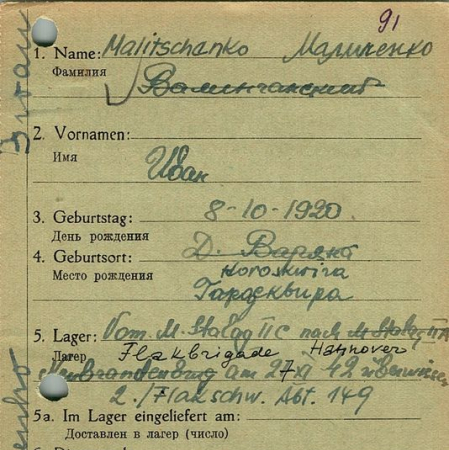 91
1. Name: Malitschanko Малиленко
Фамилия
2. Vornamen:
Имя
Иван
3. Geburtstag: 8-10-1920.
День рождения
4. Geburtsort: Д. Варяна
Место рождения
Horoskwira
Гароеквира
5. Lager: Vom M. Stalag II C nach M. Stalag II A
Лагер
Flakbrigade Hannover
Neubrandenburg am 27 XI 42 überwiesen
2./Flakschw. Abt. 149
5a. Im Lager eingeliefert am:
Доставлен в лагер (число)